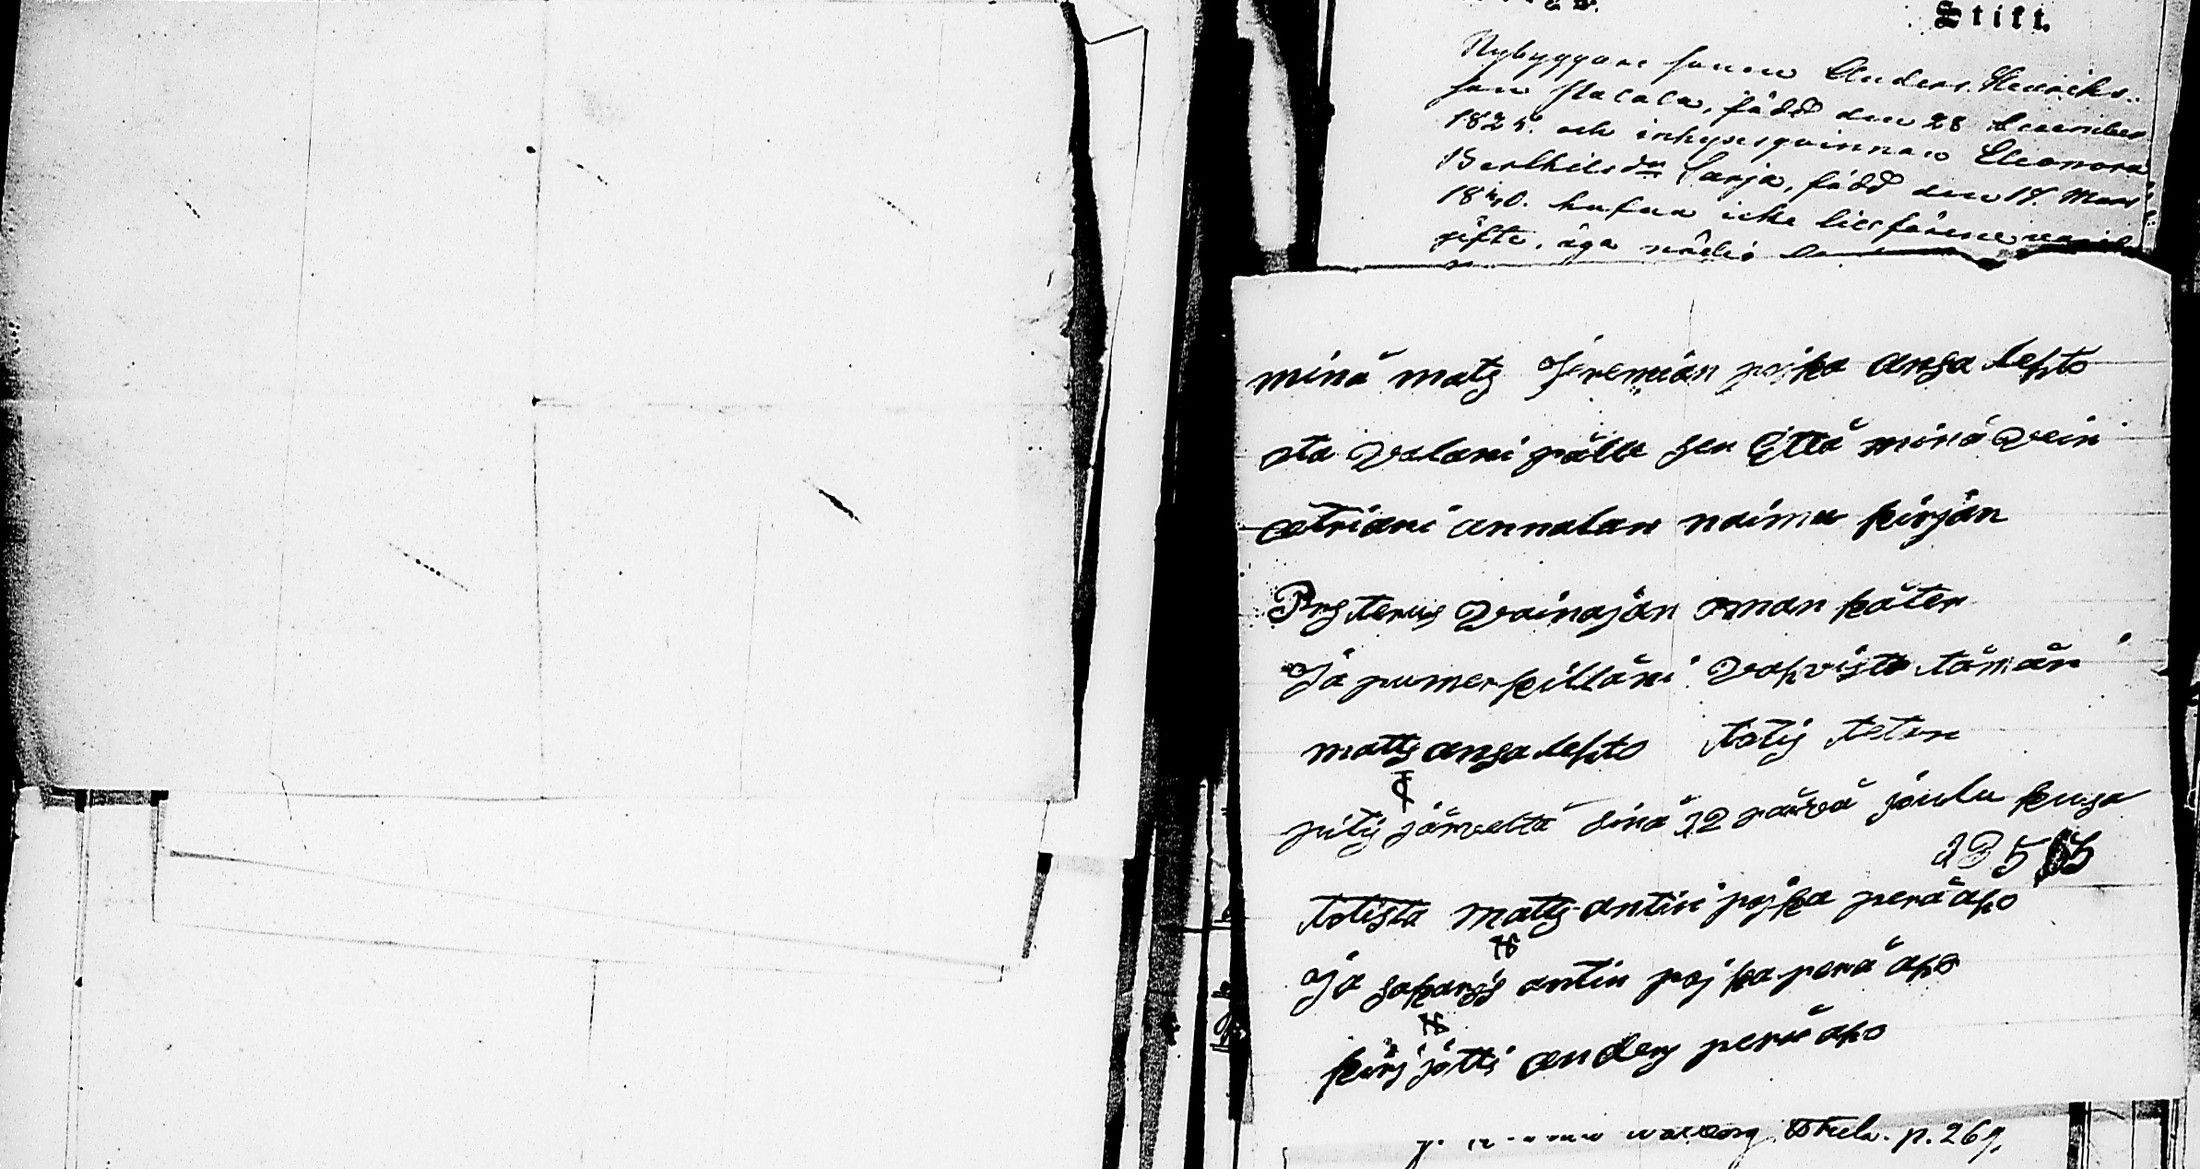 Stift.
Nybyggare sonen Anders Henriks-
son Halala, född den 28 December
1825. och inhysesqvinnan Eleonora
Barthilsdr Sarja, född den 17. Mars
1840. hafva icke tillförene varit
gifte, äga
minä mats Jeremian pojka ansa lehto
ota valani pälle sen Että minä vein
atriani annalan naima kirjän
Prysterus vainajän oman käten
Ja pumerkilläni vahvista tämän
matts ansa lehto totis tetun
pitis järveltä sinä 12 päivä joulu kusa
185
totista matts antin pojka peräaho
Ja sakaris antin pojka perä aho
kirjjötti anders perä aho
p. 269.